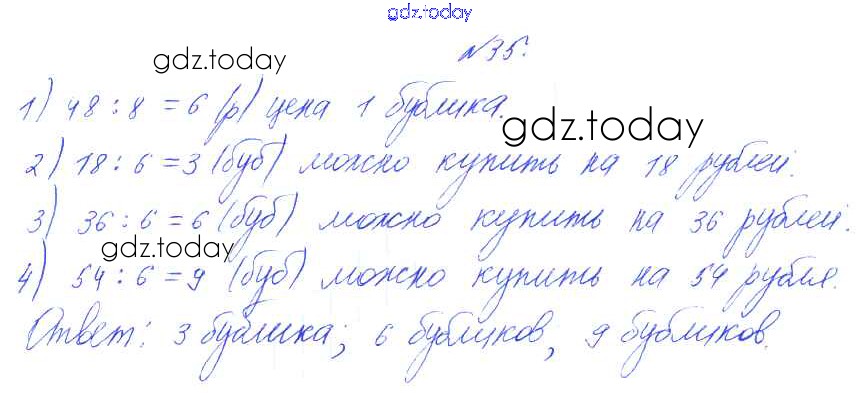 gdz.today
№35.
gdz.today
1) 48 : 8 = 6 (р) цена 1 бублика.
gdz.today
2) 18 : 6 = 3 (буб) можно купить на 18 рублей.
3) 36 : 6 = 6 (буб) можно купить на 36 рублей.
gdz.today
4) 54 : 6 = 9 (буб) можно купить на 54 рубля.
Ответ: 3 бублика; 6 бубликов, 9 бубликов.